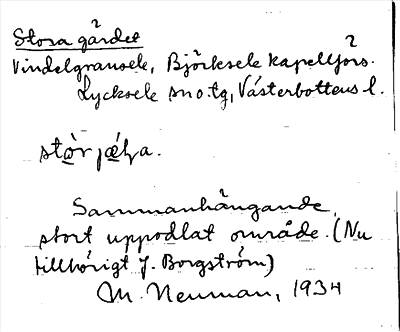 Stora gärdet
Vindelgransele, Björksele kapellförs.
Lycksele sn o. tg, Västerbottens l.
Sammanhängande,
stort uppodlat område. (Nu
tillhörigt J. Borgström)
M. Neuman, 1934